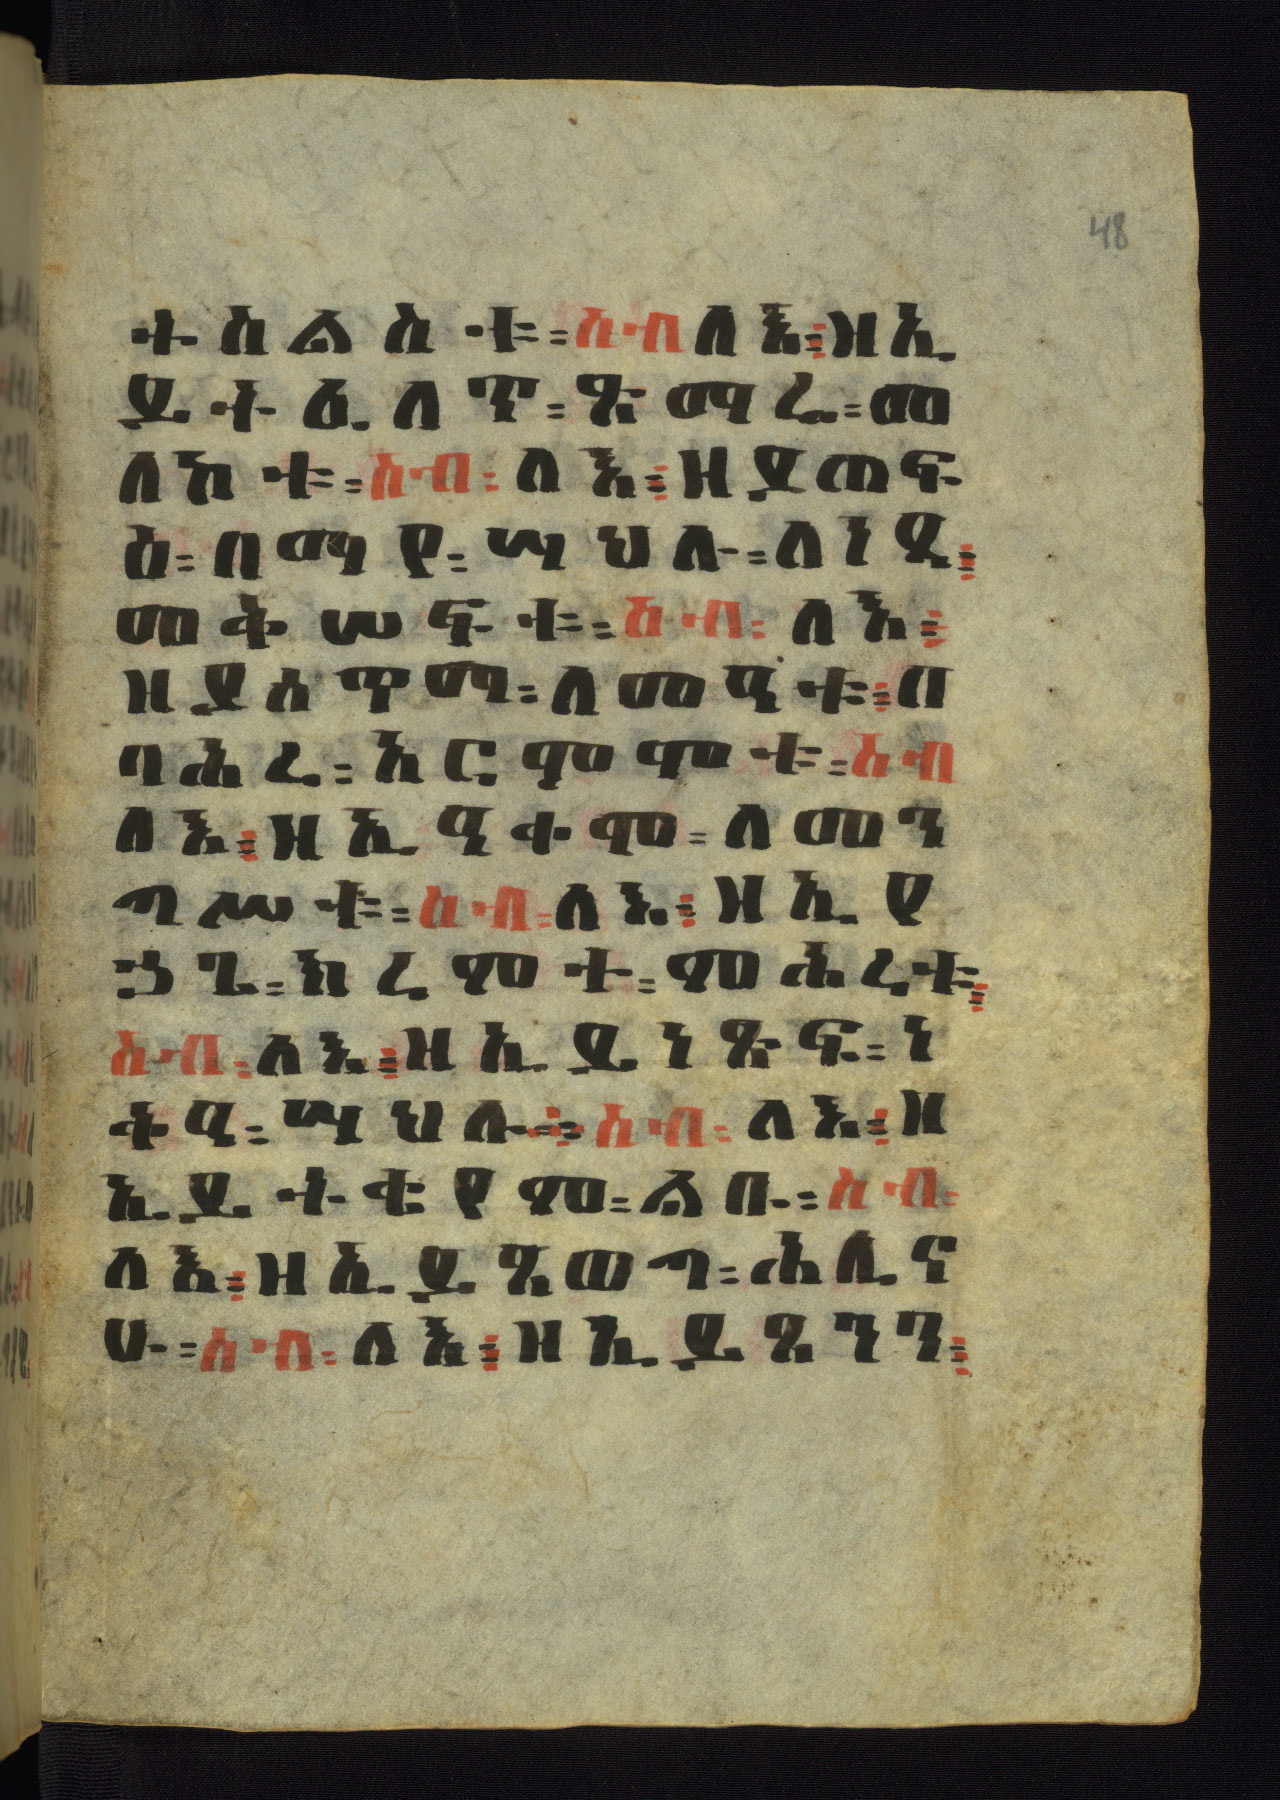 ትስልስቱ። ስብ ለእ፤ ዘኢ
ይትዌለጥ። ጽማሬ። መ
ለኮቱ። ስብ። ለእ፤ ዘያጠፍ
ዕ። በማየ። ሣህሉ። ለነደ፤
መቅሠፍቱ። ስብ። ለእ፤
ዘያሰጥም። ለመዓቱ፤ በ
ባሕረ። አርምሞቱ። ስብ
ለእ፤ ዘኢዓቀሞ። ለመን
ግሥቱ። ስብ። ለእ፤ ዘኢየ
ኃጊ። ክረምተ። ምሕረቱ፤
ስብ። ለእ፤ ዘኢይነጽፍ። ነ
ቅዓ። ሣህሉ። ስብ። ለእ፤ ዘ
ኢይትቄየም። ልቡ። ስብ።
ለእ፤ ዘኢይጼወግ። ሕሊና
ሁ። ስብ። ለእ፤ ዘኢይጼንን፤
48